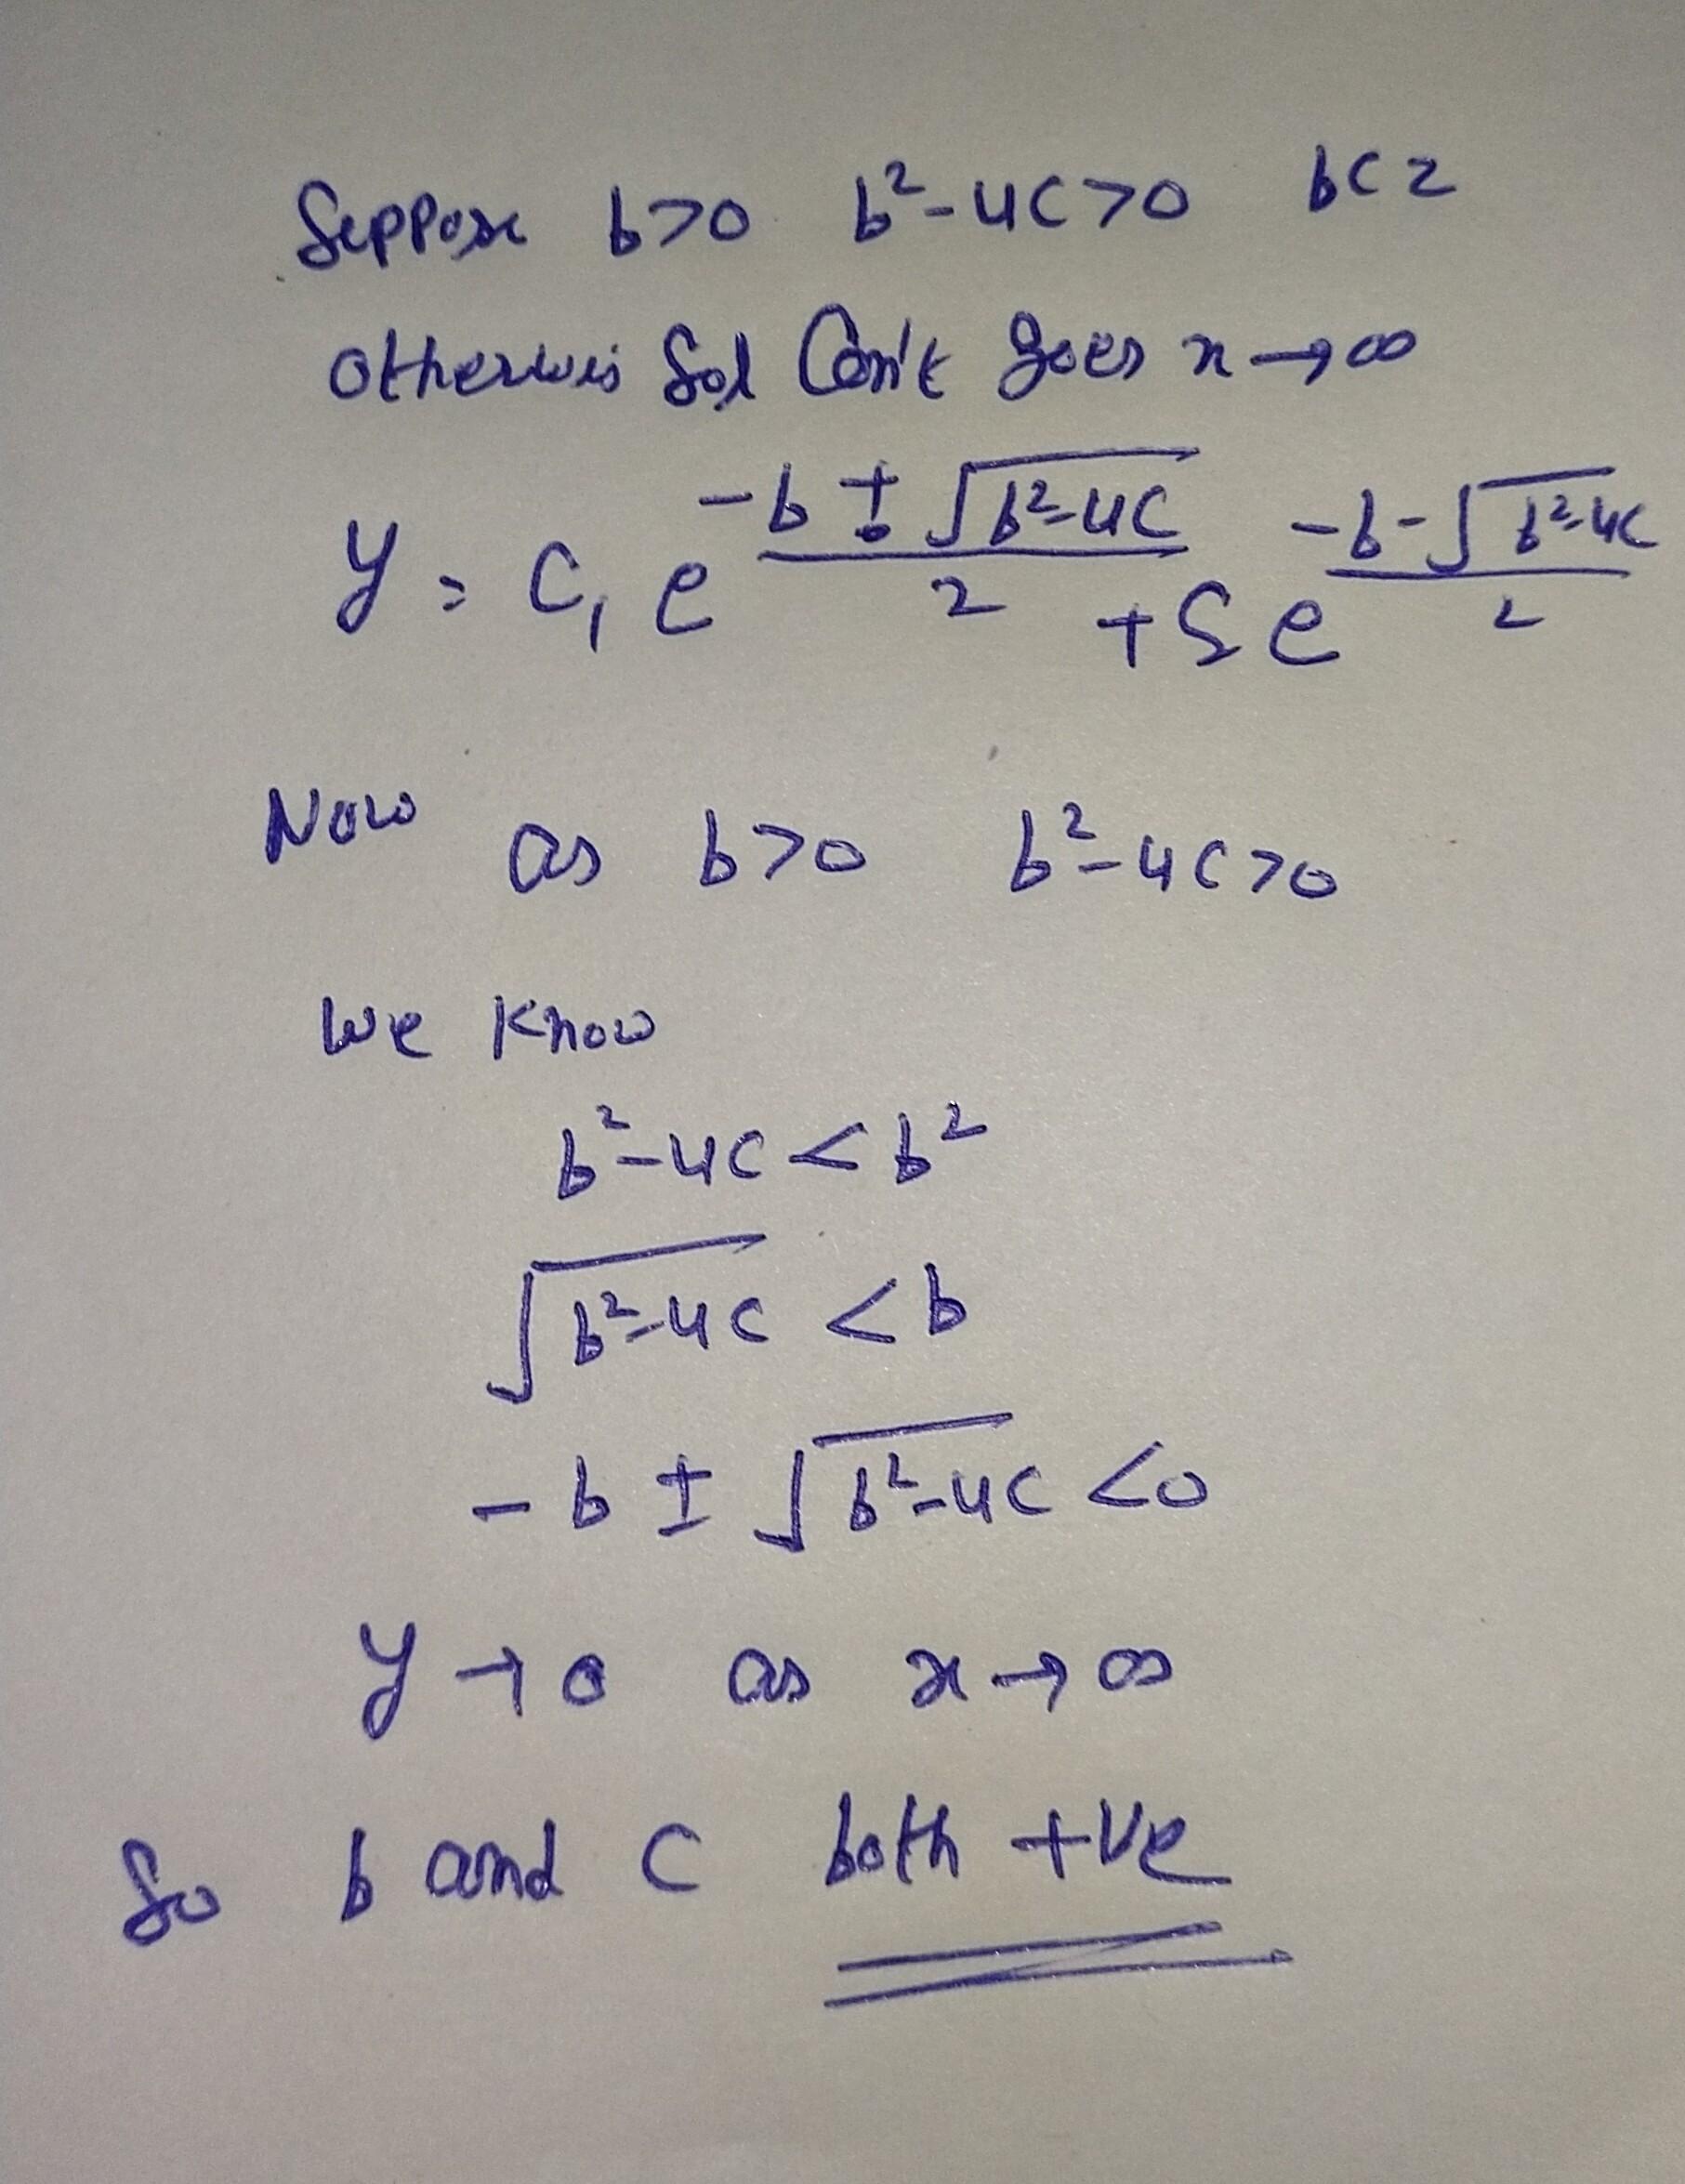 Suppose b>0 b²-4c>0 bcz
otherwis sol can't goes x→∞
y = c₁ e^(-b ± √(b²-4c))/2 + c₂ e^(-b-√(b²-4c))/2
Now as b>0 b²-4c>0
We know
b²-4c < b²
√(b²-4c) < b
-b ± √(b²-4c) <0
y → 0 as x → ∞
So b and c both +ve